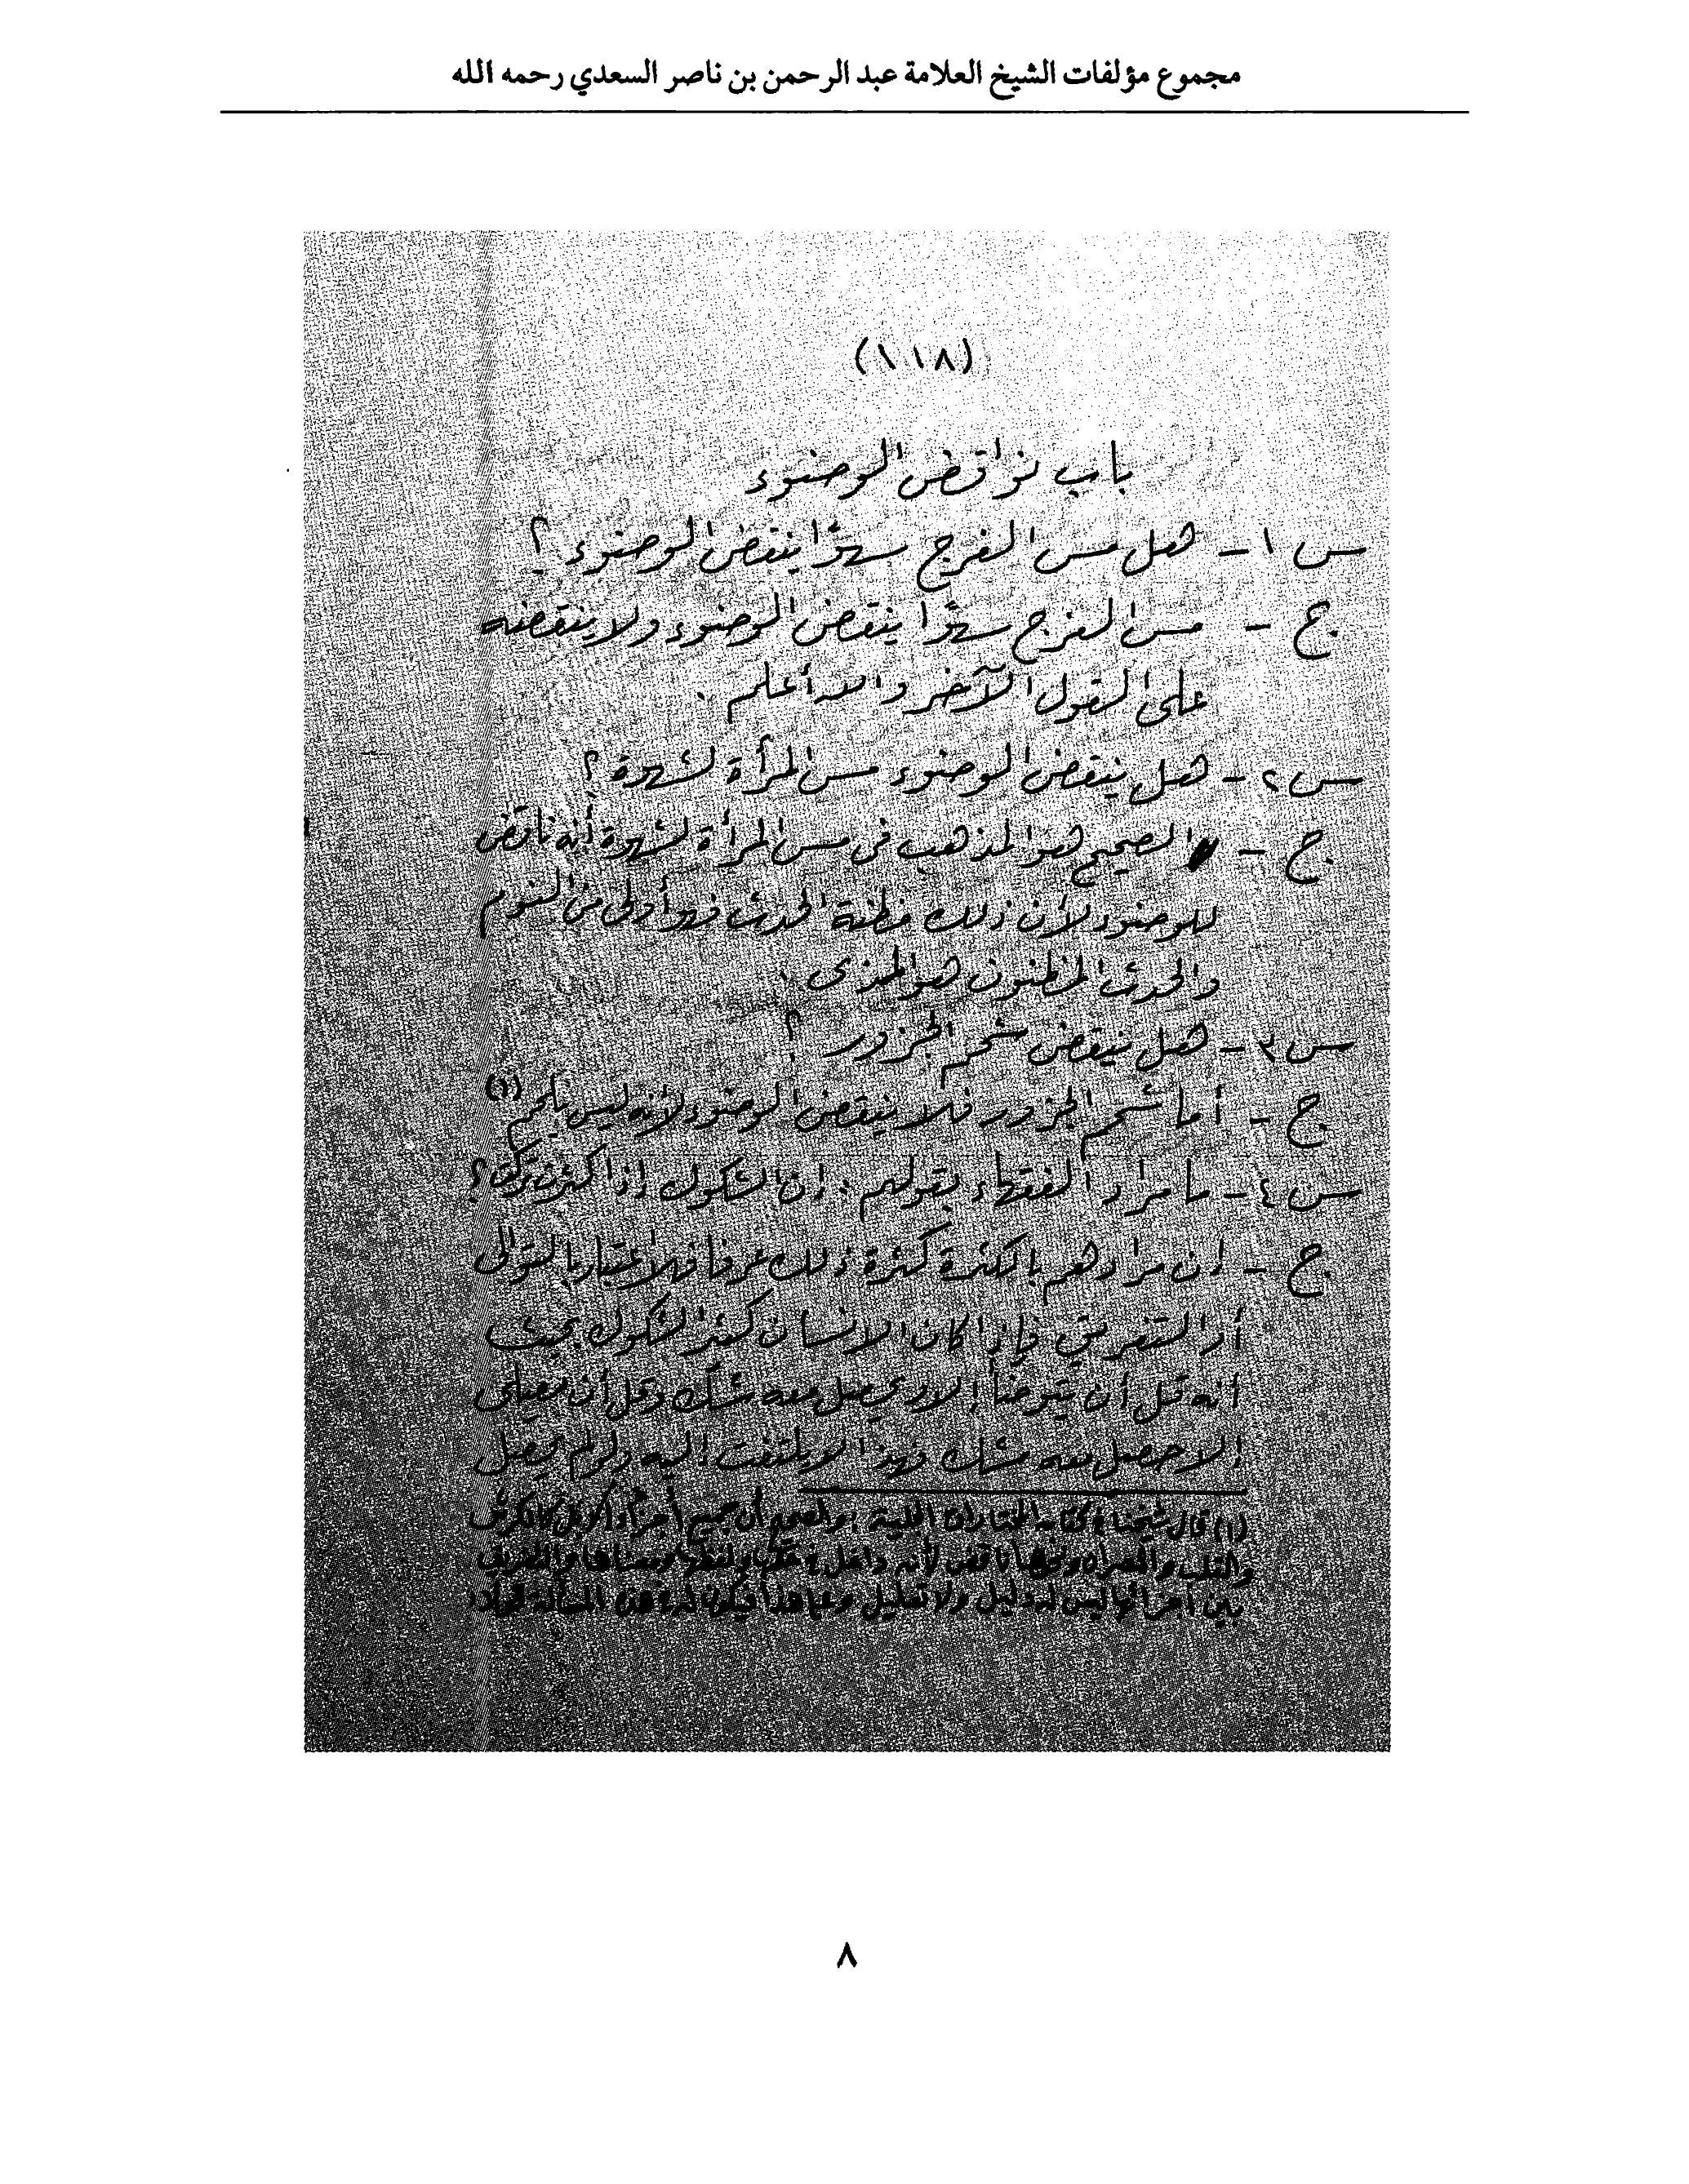 مجموع مؤلفات الشيخ العلامة عبد الرحمن بن ناصر السعدي رحمه الله
(١١٨)
باب نواقض الوضوء
س ١ - هل مس الفرج سهوًا ينقض الوضوء ؟
ج - مس الفرج سهوًا ينقض الوضوء ولا ينقضه
على القول الآخر والله أعلم .
س ٢ - هل ينقض الوضوء مس المرأة لشهوة ؟
ج - الصحيح هو المذهب في مس المرأة لشهوة أنه ناقض
للوضوء لأن ذلك مظنة الحدث فهو أولى من النوم
والحدث المظنون هو المذي .
س ٣ - هل ينقض شحم الجزور ؟
ج - أما شحم الجزور فلا ينقض الوضوء لأنه ليس بلحم (١)
س ٤ - ما مراد الفقهاء بقولهم : إن الشكوك إذا كثرت تركت ؟
ج - إن مرادهم بالكثرة كثرة ذلك عرفا فلا اعتبار بالتوالي
أو التفريق فإذا كان الانسان كثير الشكوك بحيث
أنه قل أن يتوضأ إلا ويحصل معه شك وقل أن يصلي
إلا حصل معه شك فهذا لا يلتفت إليه ولو لم يحصل
(١) قال شيخنا في كتابه المختارات الجلية : والصحيح أن جميع أجزاء الإبل كالكرش
والقلب والمصران ونحوها ناقض لأنه داخل في حكمها ولفظها ومعناها والتفريق
بين أجزائها ليس له دليل ولا تعليل وعلى هذا فيكون له في هذه المسألة قولان
٨